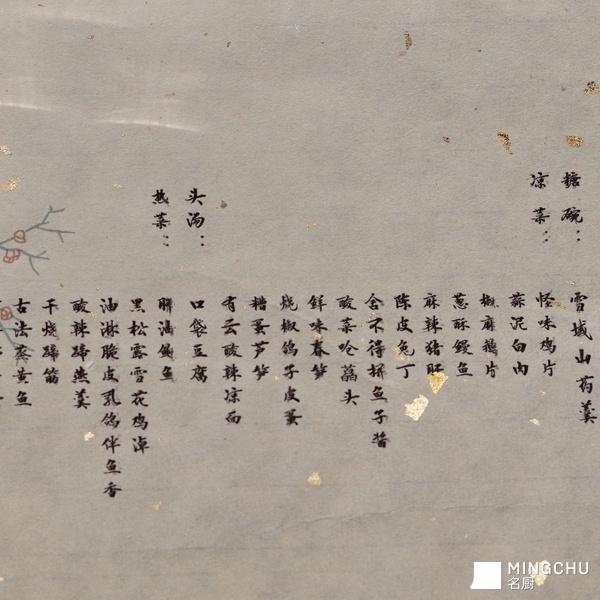 糖碗：
雪域山药羹
凉菜：
怪味鸡片
蒜泥白肉
椒麻鹅片
葱酥鳗鱼
麻辣猪肝
陈皮兔丁
舍不得拼鱼子酱
酸菜呛藠头
鲜味春笋
烧椒鸽子皮蛋
糟香芦笋
有云酸辣凉面
口袋豆腐
头汤：
肝油鲍鱼
热菜：
黑松露雪花鸡淖
油淋脆皮乳鸽伴鱼香
酸辣蹄燕羹
干烧蹄筋
古法蒸黄鱼
MINGCHU
名厨